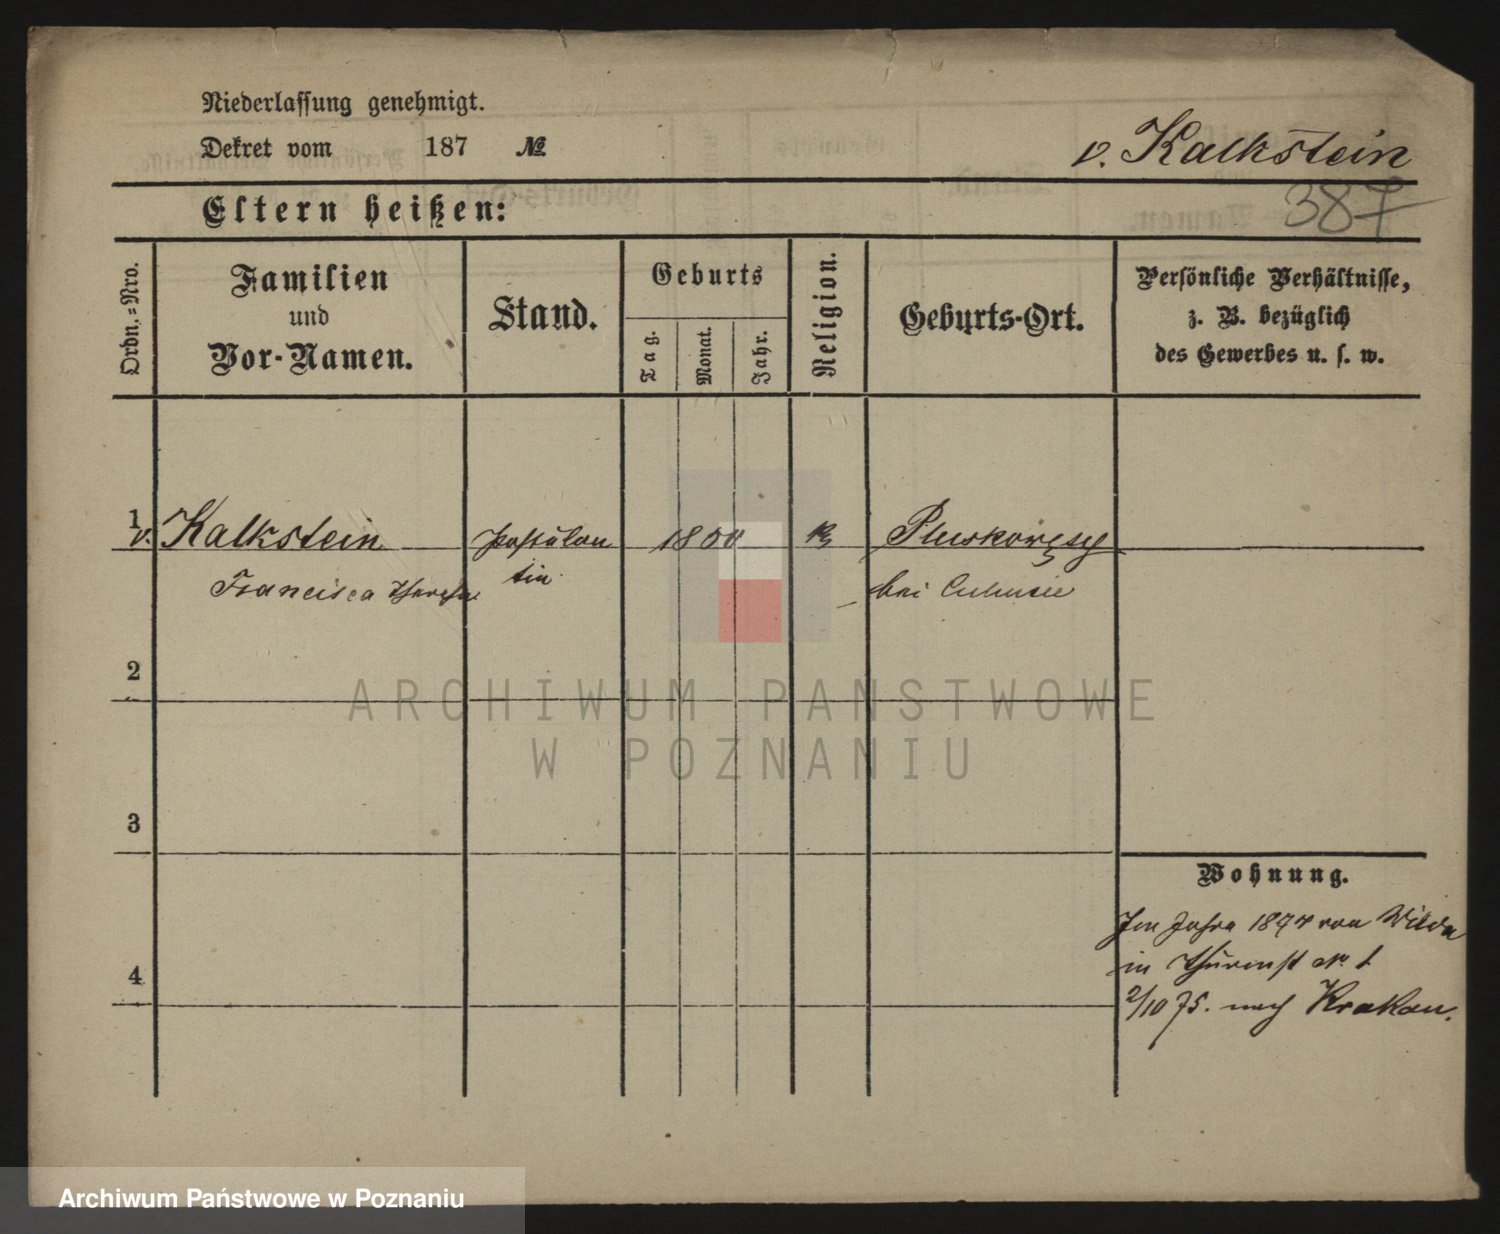 Niederlassung genehmigt.
Dekret vom 187 №
v. Kalkstein
387
Eltern heißen:
Ordn.-Nro.
Familien
und
Vor-Namen.
Stand.
Geburts
Tag.
Monat.
Jahr.
Religion.
Geburts-Ort.
Persönliche Verhältnisse,
z. B. bezüglich
des Gewerbes u. s. w.
1
v. Kalkstein Postulan 18 k Pluskowęsy
Francisca Therese tin bei Culmsee
2
ARCHIWUM PAŃSTWOWE
W POZNANIU
3
Wohnung.
Im Jahre 1874 von Wilda
in Thurmst № 1
4
2/10 75. nach Krakau.
Archiwum Państwowe w Poznaniu